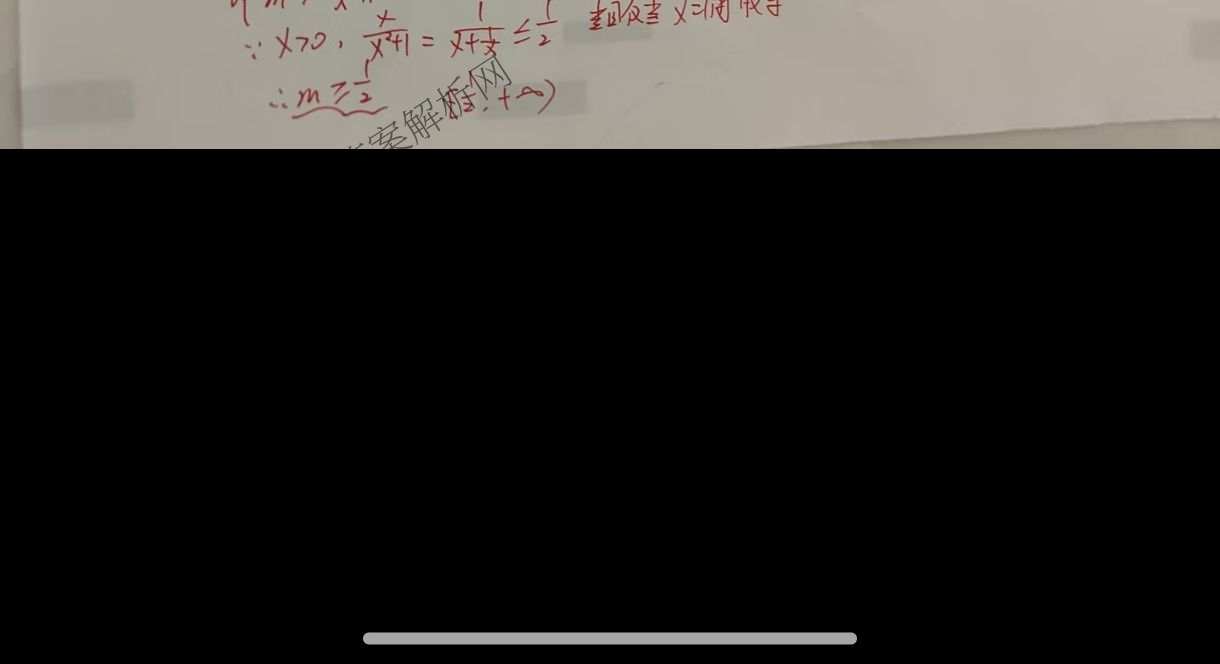 ∵ x>0, x/(x²+1) = 1/(x+1/x) ≤ 1/2 当且仅当 x=1时取等
∴ m ≥ 1/2 +∞)
案解析网